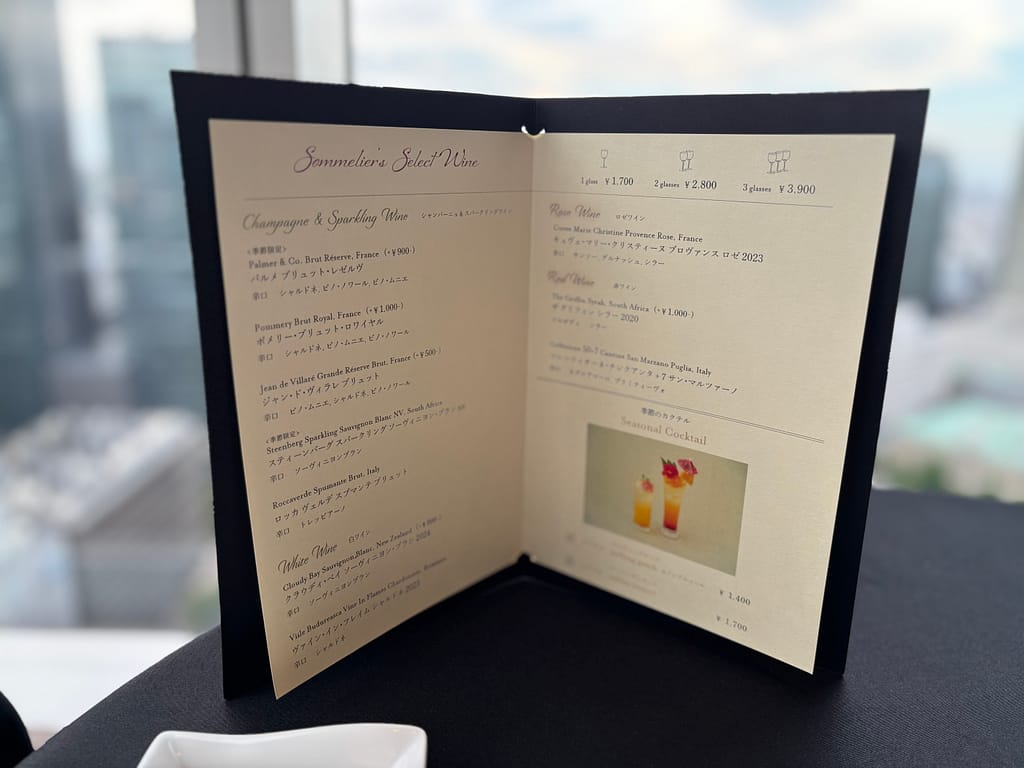 Sommelier's Select Wine
Champagne & Sparkling Wine シャンパーニュ&スパークリングワイン
<季節限定>
Palmer & Co. Brut Réserve, France (+¥900-)
パルメ ブリュット・レゼルヴ
辛口 シャルドネ, ピノ・ノワール, ピノ・ムニエ
Pommery Brut Royal, France (+¥1,000-)
ポメリー・ブリュット・ロワイヤル
辛口 シャルドネ, ピノ・ムニエ, ピノ・ノワール
Jean de Villaré Grande Réserve Brut, France (+¥500-)
ジャン・ド・ヴィラレ ブリュット
辛口 ピノ・ムニエ, シャルドネ, ピノ・ノワール
<季節限定>
Steenberg Sparkling Sauvignon Blanc NV, South Africa
スティーンバーグ スパークリング ソーヴィニヨン・ブラン
辛口 ソーヴィニヨンブラン
Roccaverde Spumante Brut, Italy
ロッカ ヴェルデ スプマンテ ブリュット
辛口 トレッビアーノ
White Wine 白ワイン
Cloudy Bay Sauvignon Blanc, New Zealand
クラウディ・ベイ ソーヴィニヨン・ブラン 2024
辛口 ソーヴィニヨンブラン
Viile Budureasca Vine In Flames Chardonnay, Romania
ヴァイン・イン・フレイム シャルドネ 2023
辛口 シャルドネ
1 glass ¥ 1.700 2 glasses ¥ 2.800 3 glasses ¥ 3.900
Rose Wine ロゼワイン
Cuvee Marie Christine Provence Rose, France
キュヴェ・マリー・クリスティーヌ プロヴァンス ロゼ 2023
辛口 サンソー, グルナッシュ, シラー
Red Wine 赤ワイン
The Griffin Syrah, South Africa (+¥1,000-)
ザ グリフィン シラー 2020
シラー
Collezione 50+7 Cantine San Marzano Puglia, Italy
コレッツィオーネ・チンクアンタ+7 サン・マルツァーノ
ネグロアマーロ, プリミティーヴォ
季節のカクテル
Seasonal Cocktail
¥ 1.400
¥ 1,700